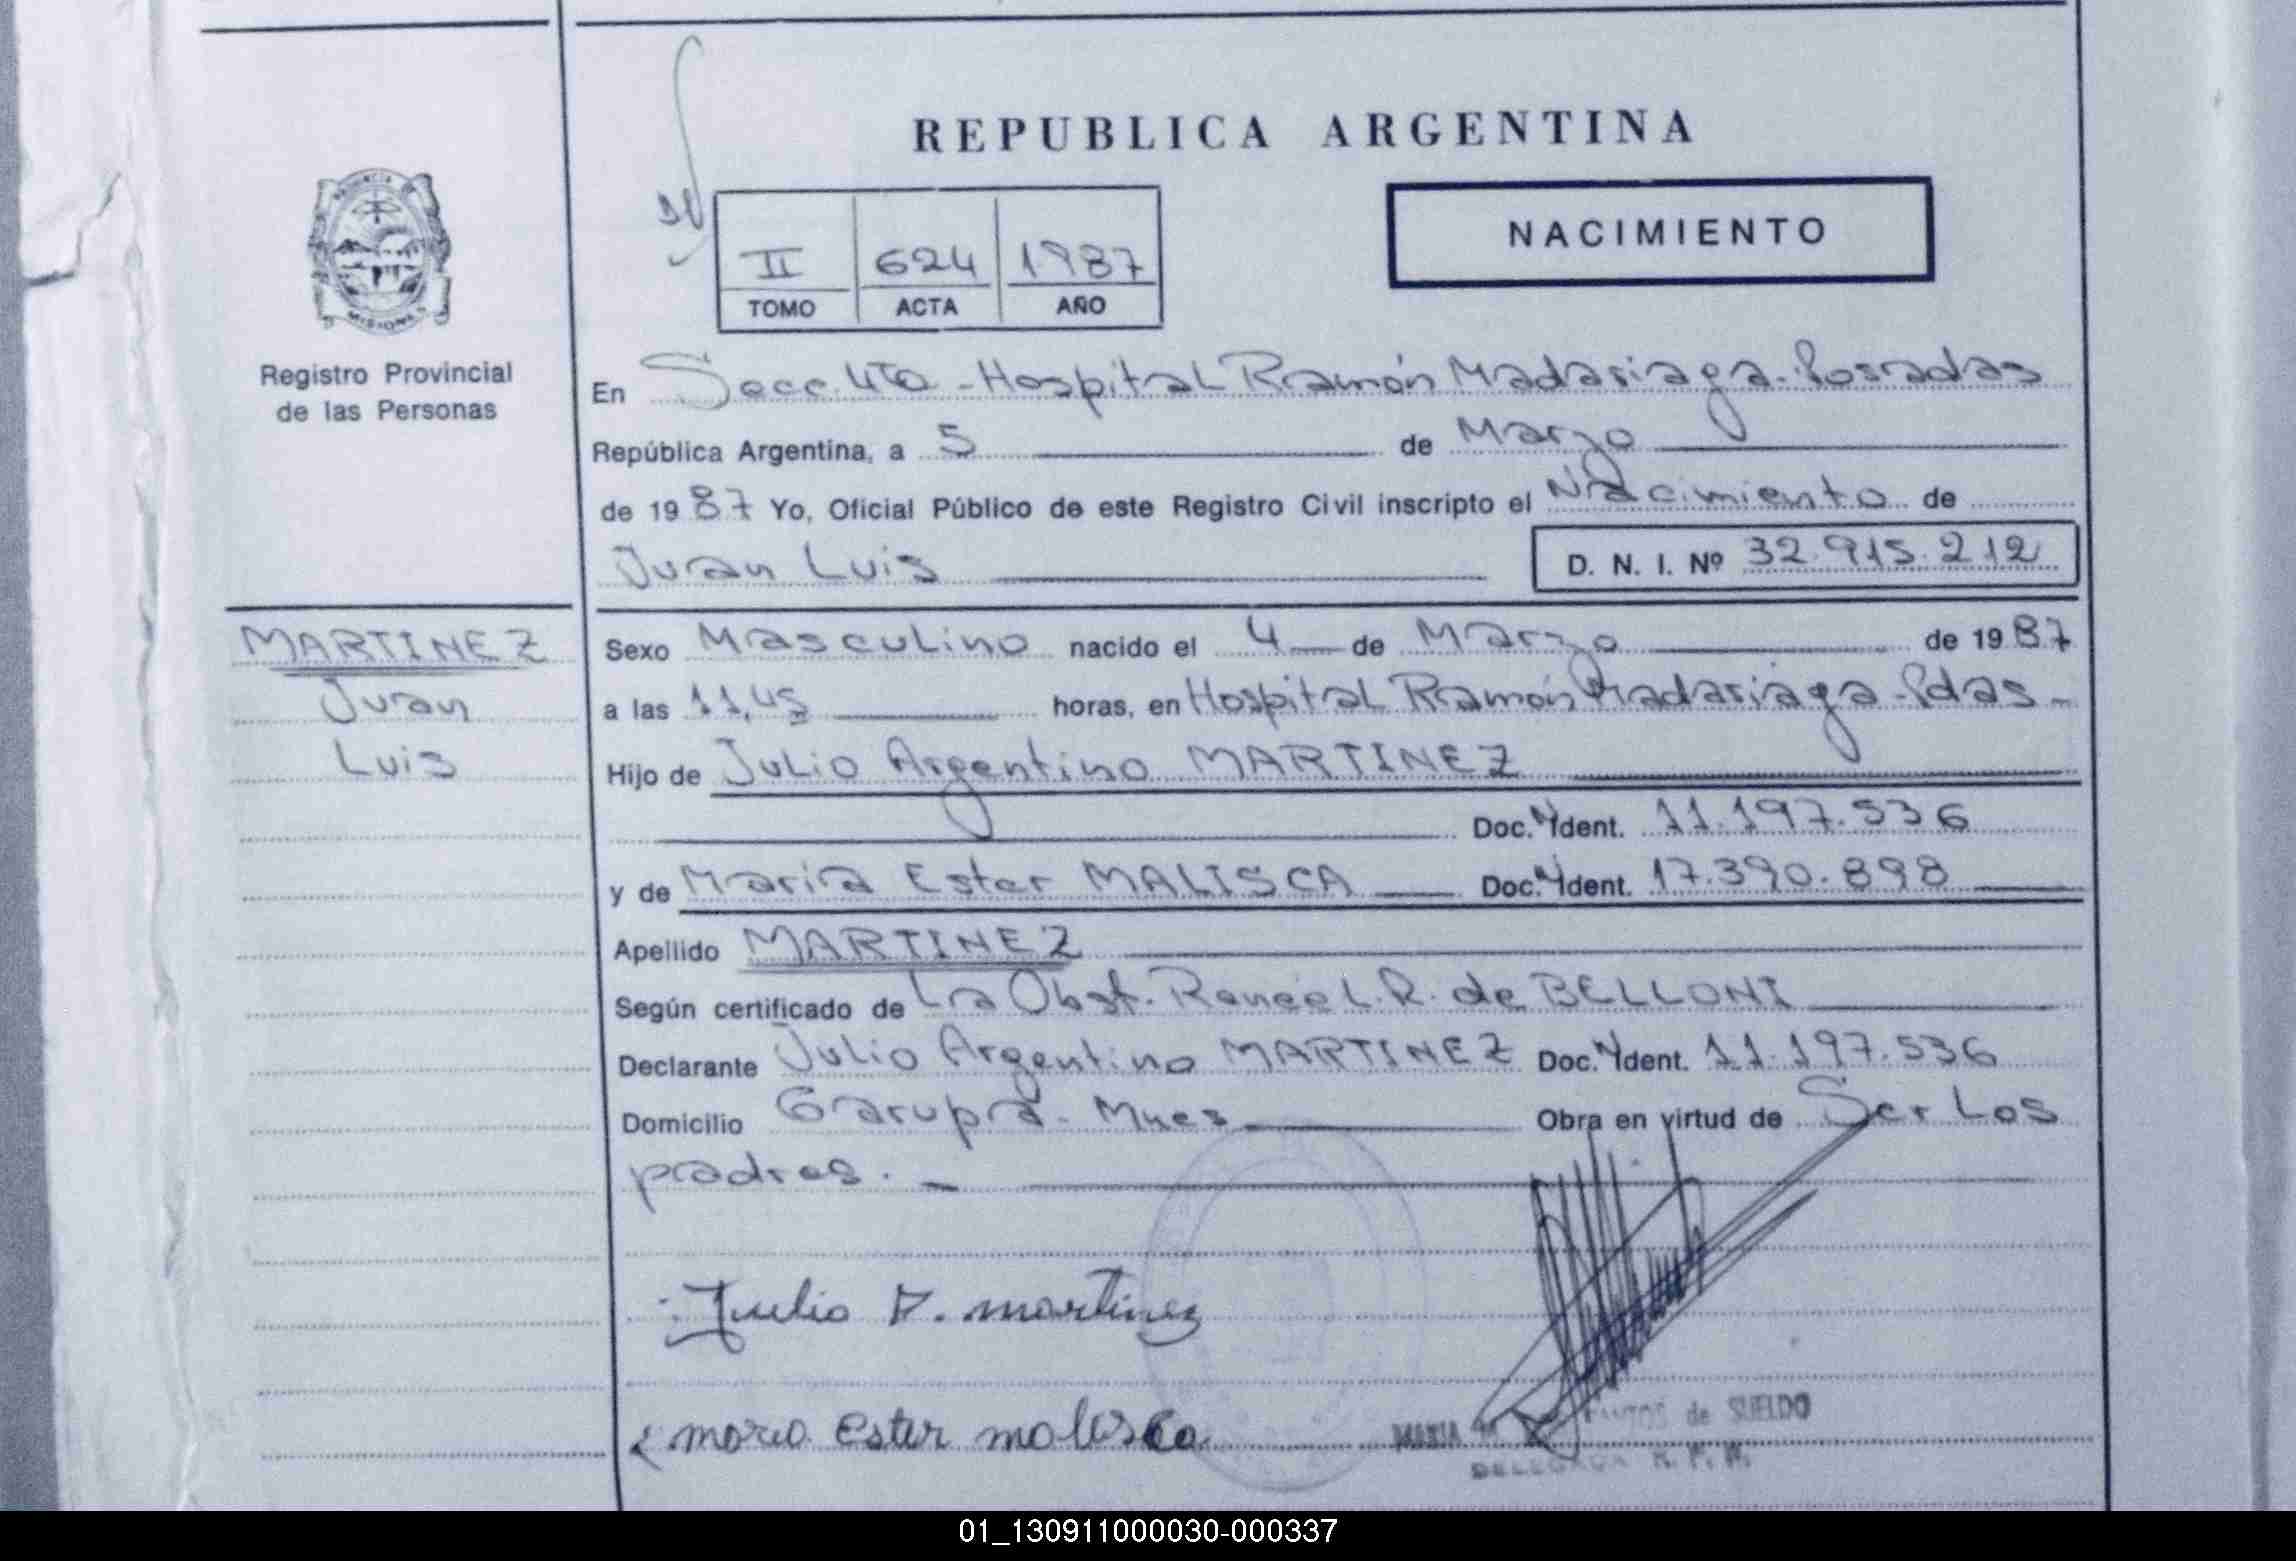 REPUBLICA ARGENTINA
NACIMIENTO
II 624 1987
TOMO ACTA AÑO
MISIONES
Registro Provincial
de las Personas
En Secc. 4ta - Hospital Ramón Madariaga - Posadas
República Argentina, a 5 de Marzo
de 1987 Yo, Oficial Público de este Registro Civil inscripto el Nacimiento de
Juan Luis D. N. I. Nº 32.915.212
MARTINEZ
Juan
Luis
Sexo Masculino nacido el 4 de Marzo de 1987
a las 11,45 horas, en Hospital Ramón Madariaga - Pdas -
Hijo de Julio Argentino MARTINEZ
Doc. Ident. 11.197.536
y de Maria Ester MALISCA Doc. Ident. 17.390.898
Apellido MARTINEZ
Según certificado de La Obst. Reneé L. R. de BELLONI
Declarante Julio Argentino MARTINEZ Doc. Ident. 11.197.536
Domicilio Garupá - Mnes Obra en virtud de Ser Los
padres. -
Julio A. Martinez
Maria Ester Malisca
MARIA de SUELDO
DELEGADA
01_130911000030-000337